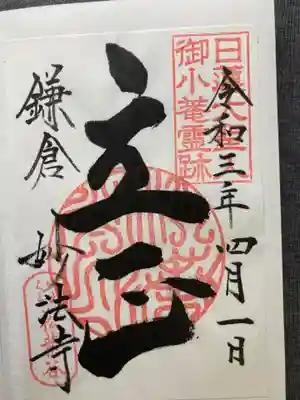 日蓮大聖
御小菴霊跡
令和三年四月一日
立正
鎌倉
妙法寺